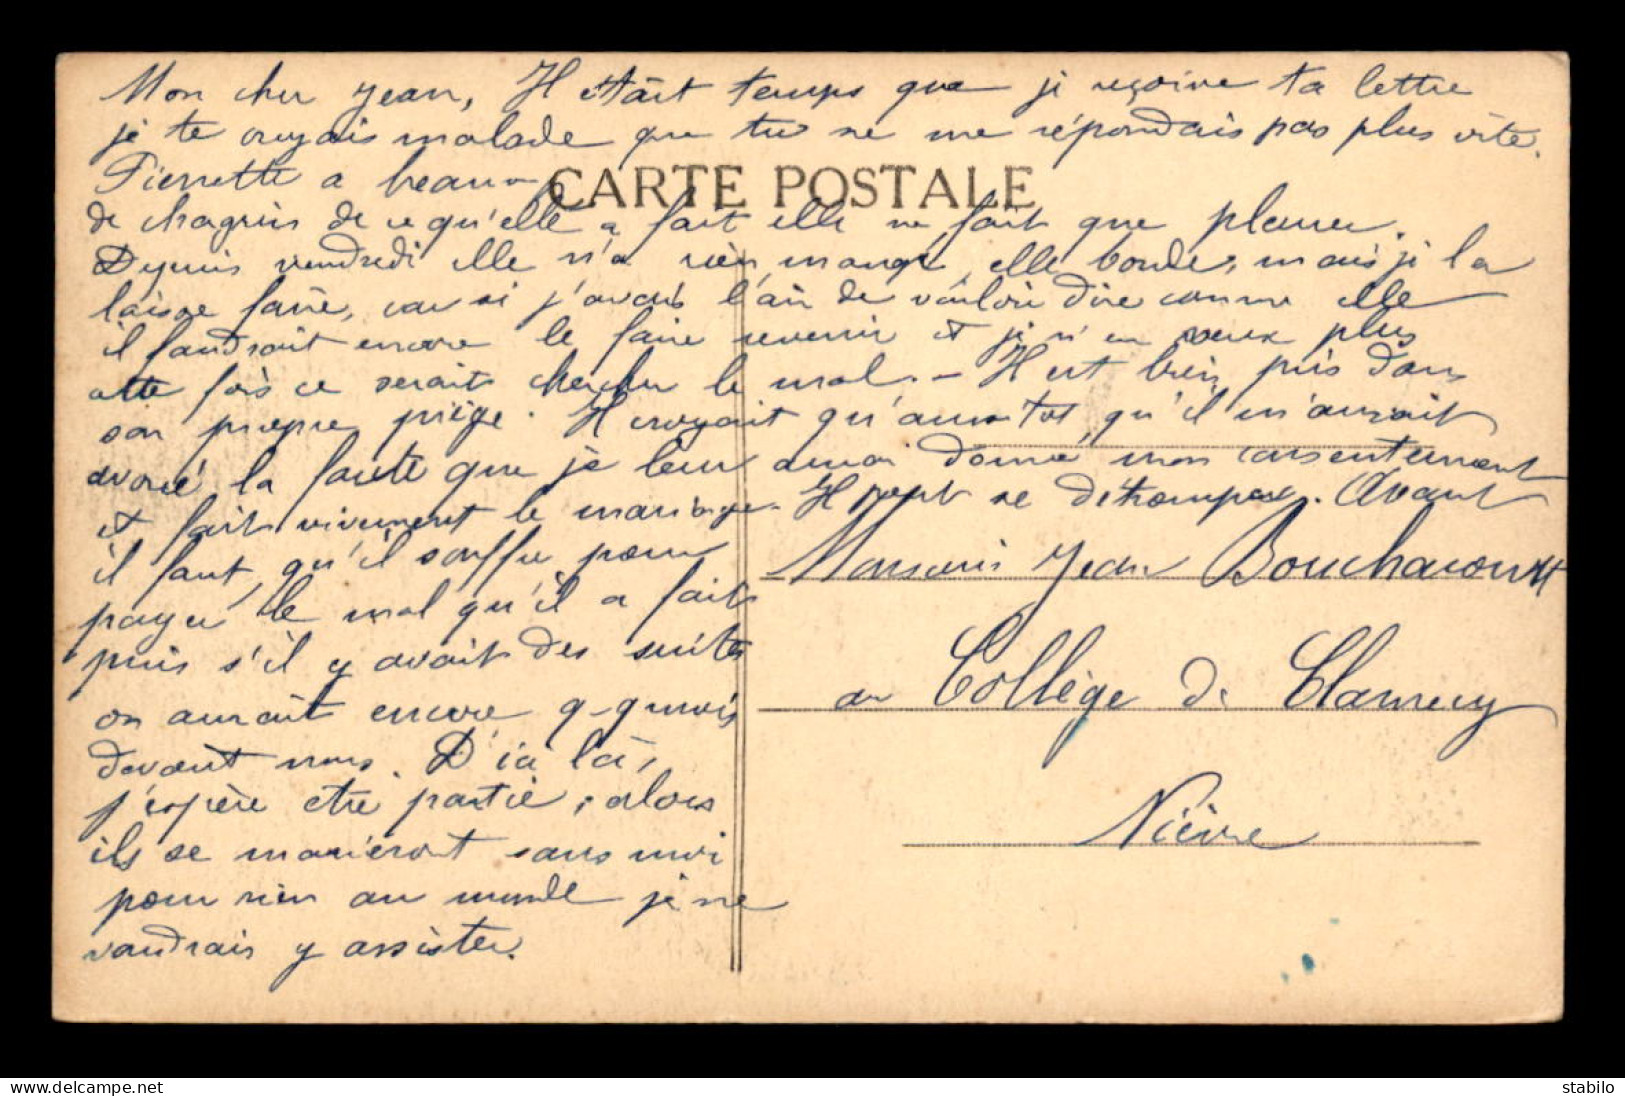 Mon cher Jean, Il était temps que je reçoive ta lettre
je te croyais malade que tu ne me répondais pas plus vite.
Pierrette a beaucoup
CARTE POSTALE
de chagrin de ce qu'elle a fait elle ne fait que pleurer.
Depuis vendredi elle n'a rien mangé, elle boude, mais je la
laisse faire, car si j'avais l'air de vouloir dire comme elle
il faudrait encore le faire revenir et je n'en veux plus
cette fois ce serait chercher le mal. - Il est bien pris dans
son propre piège. Il croyait qu'aussitôt qu'il m'aurait
avoué la faute que je leur aurai donné mon consentement
et fait vivement le mariage. Il peut se détromper. Avant
il faut qu'il souffre pour
payer le mal qu'il a fait
puis s'il y avait des suites
on aurait encore q-q mois
devant nous. D'ici là,
j'espère être partie, alors
ils se marieront sans moi
pour rien au monde je ne
voudrais y assister.
Monsieur Jean Bouchacourt
au Collège de Clamecy
Nièvre
delcampe.net
stabilo